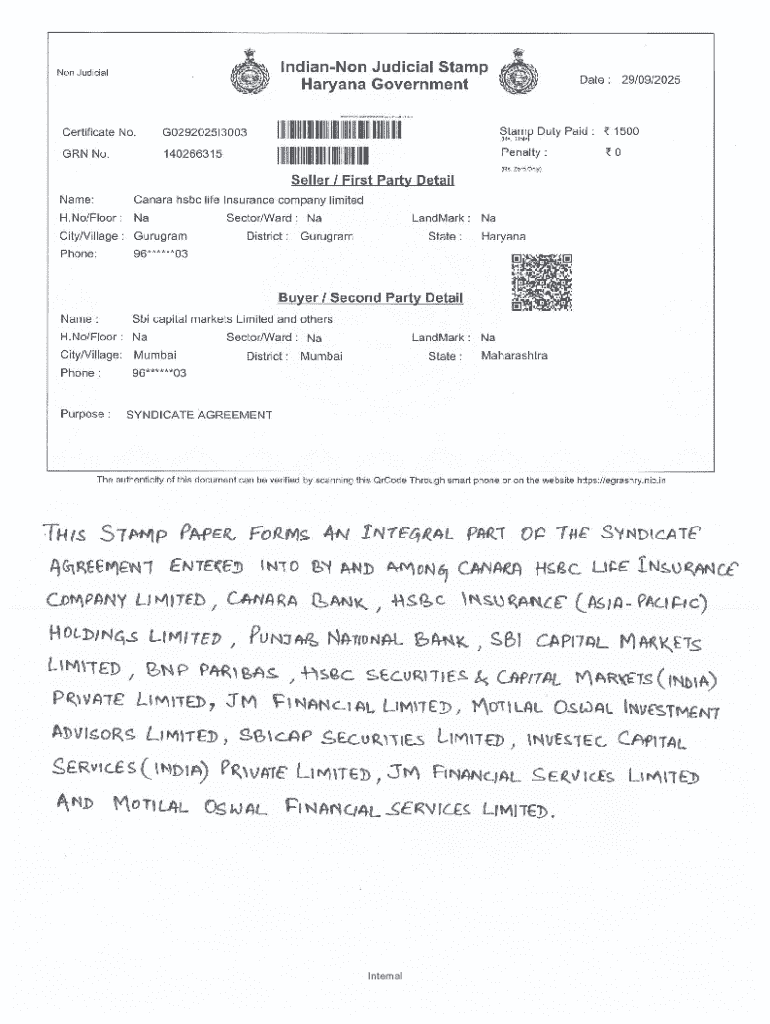 Non Judicial
Indian-Non Judicial Stamp
Haryana Government
Date : 29/09/2025
Certificate No. G0292025I3003
Stamp Duty Paid : ₹ 1500
GRN No. 140266315
Penalty : ₹ 0
(Rs. Zero Only)
Seller / First Party Detail
Name: Canara hsbc life Insurance company limited
H.No/Floor : Na Sector/Ward : Na LandMark : Na
City/Village : Gurugram District : Gurugram State : Haryana
Phone: 96******03
Buyer / Second Party Detail
Name : Sbi capital markets Limited and others
H.No/Floor : Na Sector/Ward : Na LandMark : Na
City/Village: Mumbai District : Mumbai State : Maharashtra
Phone : 96******03
Purpose : SYNDICATE AGREEMENT
The authenticity of this document can be verified by scanning this QrCode Through smart phone or on the website https://egrashry.nic.in
THIS STAMP PAPER FORMS AN INTEGRAL PART OF THE SYNDICATE
AGREEMENT ENTERED INTO BY AND AMONG CANARA HSBC LIFE INSURANCE
COMPANY LIMITED, CANARA BANK, HSBC INSURANCE (ASIA-PACIFIC)
HOLDINGS LIMITED, PUNJAB NATIONAL BANK, SBI CAPITAL MARKETS
LIMITED, BNP PARIBAS, HSBC SECURITIES & CAPITAL MARKETS (INDIA)
PRIVATE LIMITED, JM FINANCIAL LIMITED, MOTILAL OSWAL INVESTMENT
ADVISORS LIMITED, SBICAP SECURITIES LIMITED, INVESTEC CAPITAL
SERVICES (INDIA) PRIVATE LIMITED, JM FINANCIAL SERVICES LIMITED
AND MOTILAL OSWAL FINANCIAL SERVICES LIMITED.
Internal